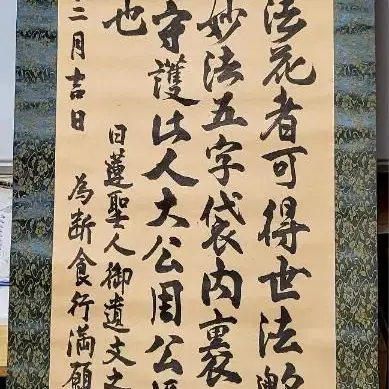 法花者可得世法歟
妙法五字袋内裏
守護此人大公周公
也
日蓮聖人御遺文之
二月吉日 為断食行満願